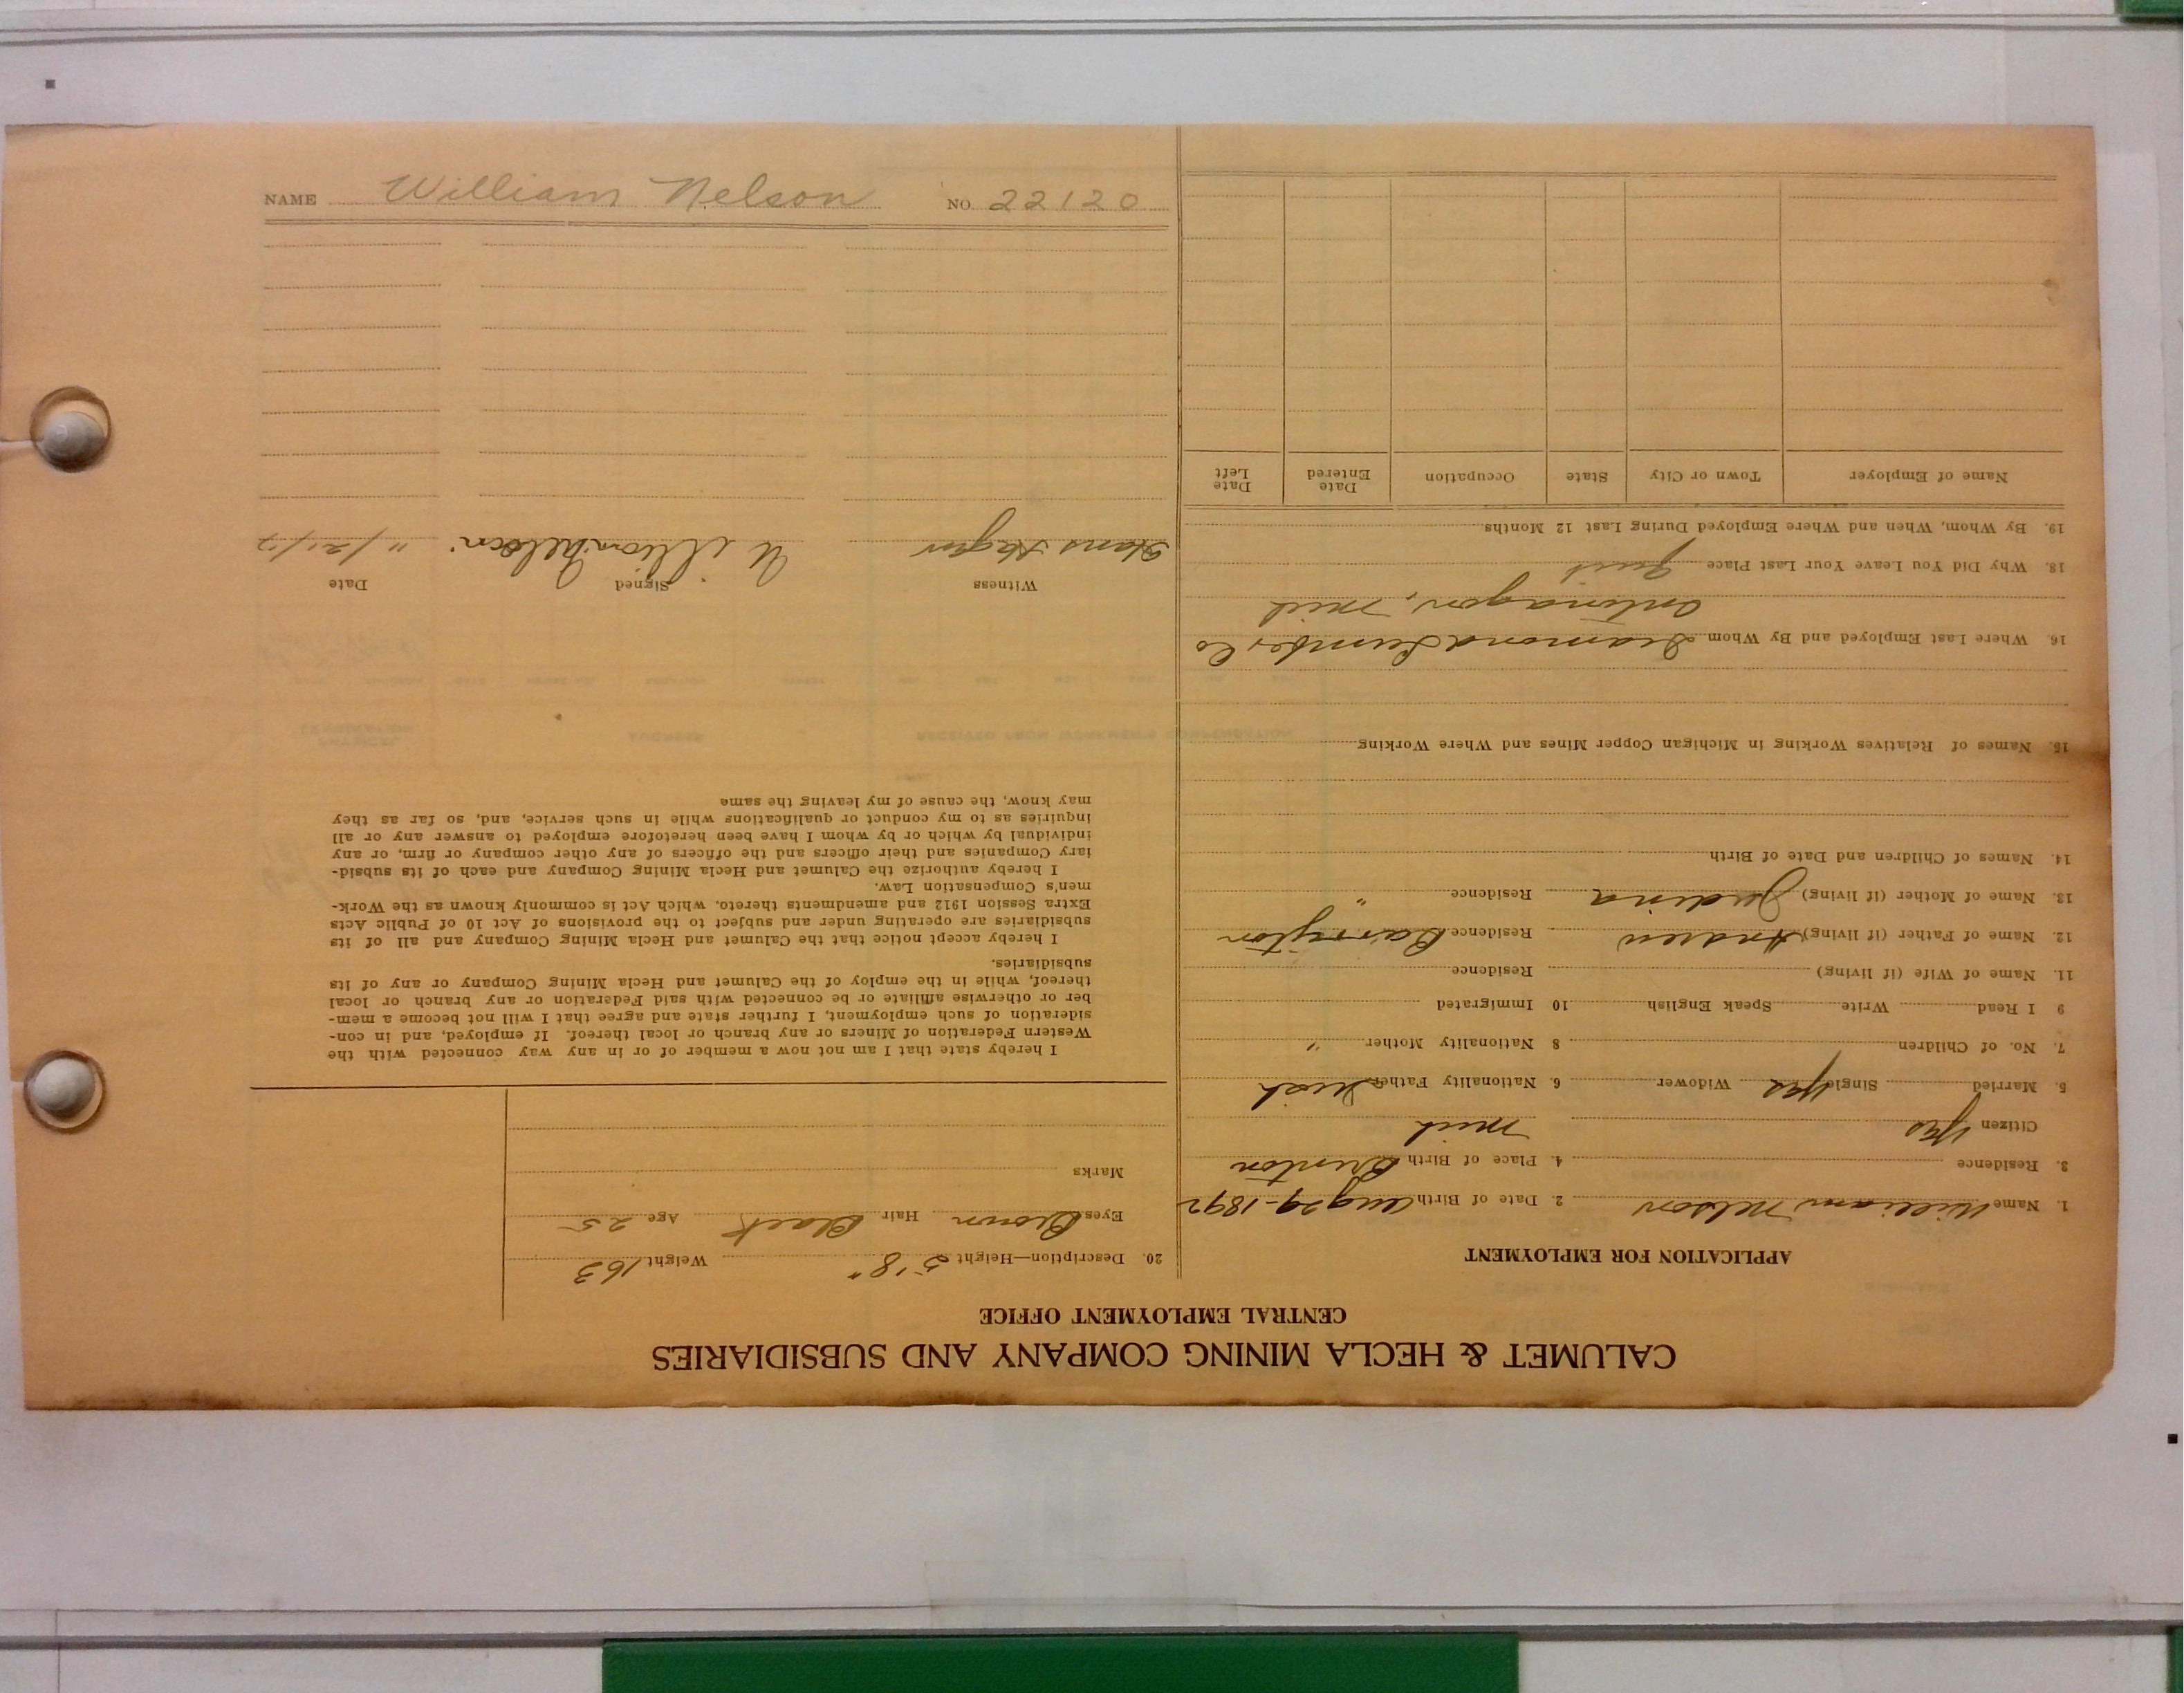 CALUMET & HECLA MINING COMPANY AND SUBSIDIARIES
CENTRAL EMPLOYMENT OFFICE
APPLICATION FOR EMPLOYMENT
1. Name William Nelson 2. Date of Birth Aug 29-1892
3. Residence 4. Place of Birth
Citizen Yes Mich
5. Married Single Yes Widower 6. Nationality Father
7. No. of Children 8 Nationality Mother "
9 I Read Write Speak English 10 Immigrated
11. Name of Wife (if living) Residence
12. Name of Father (if living) Andrew Residence
13. Name of Mother (if living) Residence "
14. Names of Children and Date of Birth
15. Names of Relatives Working in Michigan Copper Mines and Where Working
16. Where Last Employed and By Whom Diamond Lumber Co
Ontonagon, Mich
18. Why Did You Leave Your Last Place quit
19. By Whom, When and Where Employed During Last 12 Months
Name of Employer Town or City State Occupation Date Entered Date Left
20. Description—Height 5'8" Weight 163
Eyes Brown Hair Black Age 25
Marks
I hereby state that I am not now a member of or in any way connected with the
Western Federation of Miners or any branch or local thereof. If employed, and in con-
sideration of such employment, I further state and agree that I will not become a mem-
ber or otherwise affiliate or be connected with said Federation or any branch or local
thereof, while in the employ of the Calumet and Hecla Mining Company or any of its
subsidiaries.
I hereby accept notice that the Calumet and Hecla Mining Company and all of its
subsidiaries are operating under and subject to the provisions of Act 10 of Public Acts
Extra Session 1912 and amendments thereto, which Act is commonly known as the Work-
men's Compensation Law.
I hereby authorize the Calumet and Hecla Mining Company and each of its subsid-
iary Companies and their officers and the officers of any other company or firm, or any
individual by which or by whom I have been heretofore employed to answer any or all
inquiries as to my conduct or qualifications while in such service, and, so far as they
may know, the cause of my leaving the same
Witness Signed Date
Hans William Nelson 11/21/17
NAME William Nelson NO. 22120